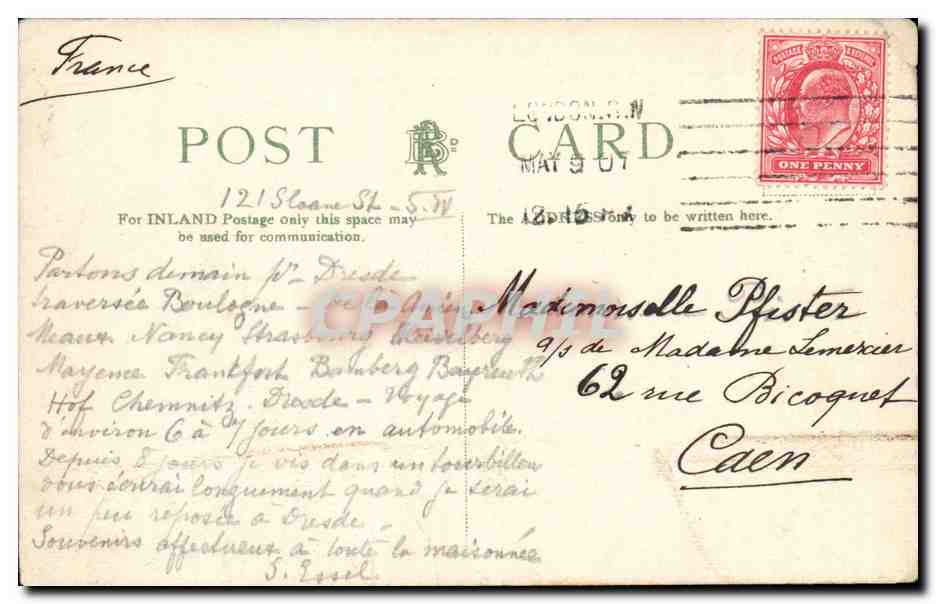 France
POST CARD
LONDON. S.W
MAY 9 07
12.15
POSTAGE REVENUE
ONE PENNY
121 Sloane St - S.W
For INLAND Postage only this space may
be used for communication.
The ADDRESS only to be written here.
Partons demain pr Dresde
traversée Boulogne -
Meaux Nancy Strasbourg
Mayence Frankfort Bamberg Bayreuth
Hof Chemnitz. Dresde - Voyage
d'environ 6 à 7 jours en automobile.
Depuis 8 jours je vis dans un tourbillon
vous écrirai longuement quand je serai
un peu reposée à Dresde -
Souvenirs affectueux à toute la maisonnée
S. Essel
Mademoiselle Pfister
a/s de Madame Lemercier
62 rue Bicoquet
Caen
CPAPHIL